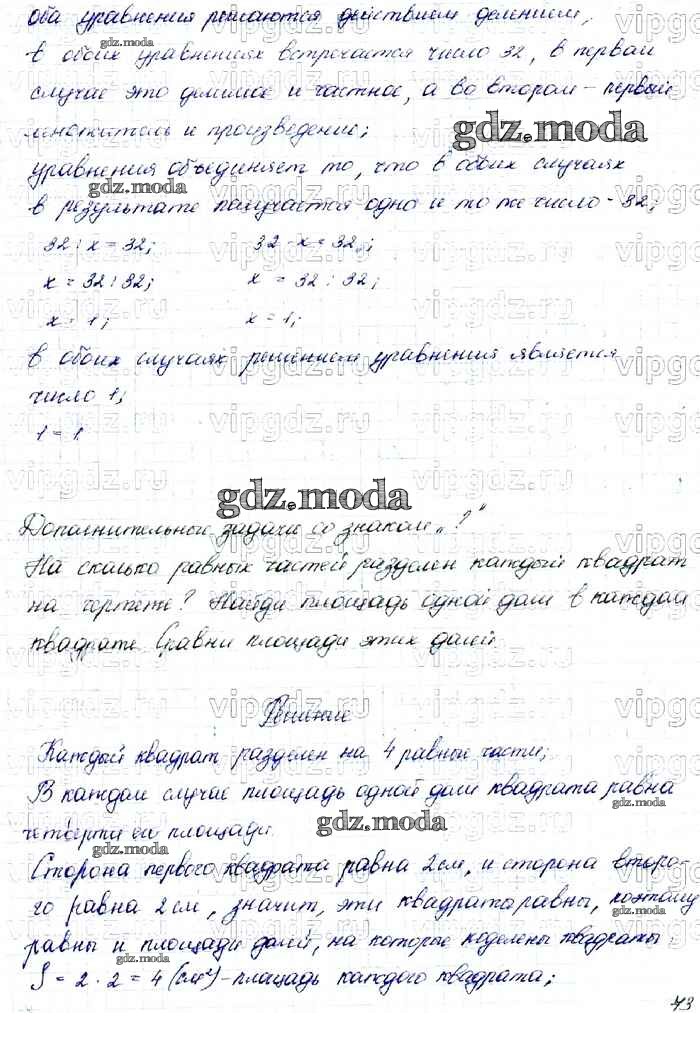 оба уравнения решаются действием делением,
в обоих уравнениях встречается число 32, в первом
случае это делимое и частное, а во втором - первый
множитель и произведение;
gdz.moda
уравнения объединяет то, что в обоих случаях
gdz.moda
в результате получается одно и то же число - 32;
32 : x = 32; 32 · x = 32;
x = 32 : 32; x = 32 : 32;
x = 1; x = 1;
в обоих случаях решением уравнения является
число 1;
1 = 1
gdz.moda
Дополнительные задачи со знаком „?"
На сколько равных частей разделен каждый квадрат
на чертеже? Найди площадь одной доли в каждом
квадрате. Сравни площади этих долей.
gdz.moda
Решение
Каждый квадрат разделен на 4 равные части;
gdz.moda
В каждом случае площадь одной доли квадрата равна
четверти его площади.
gdz.moda
gdz.moda
Сторона первого квадрата равна 2 см, и сторона второ-
го равна 2 см, значит, эти квадраты равны, поэтому
gdz.moda
равны и площади долей, на которые поделены квадраты.
S = 2 · 2 = 4 (см²) - площадь каждого квадрата;
gdz.moda
73
vipgdz.ru